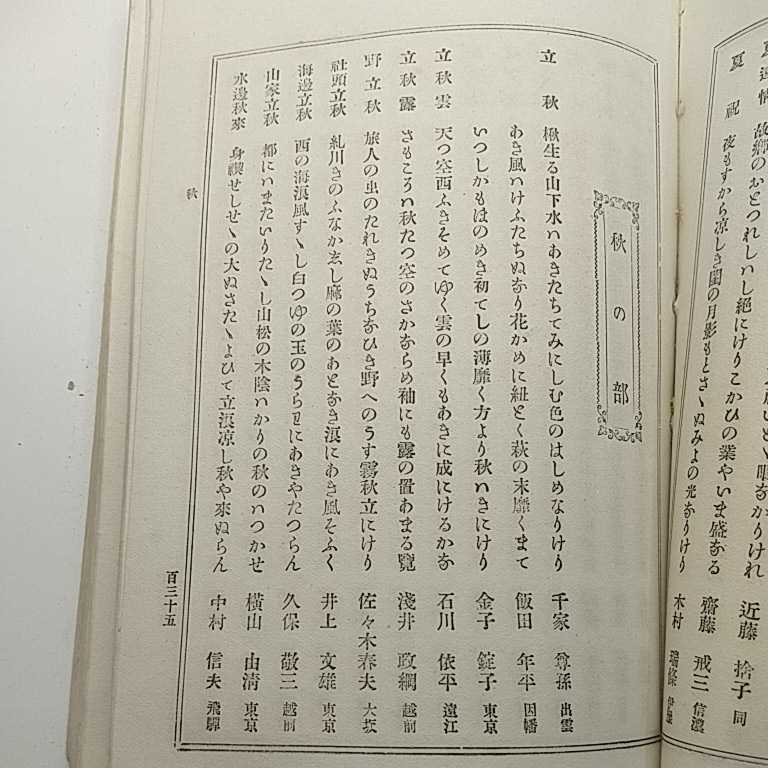 夏祝 夜もすから凉しき閨の月影もとさゝぬみよの光なりけり 木村
故郷のおとつれしいし絶にけりこかひの業やいま盛なる 齋藤 戒三 信濃
近藤 捨子 同
秋の部
立秋 楸生る山下水ハあきたちてみにしむ色のはしめなりけり 千家 尊孫 出雲
あき風ハけふたちぬなり花かめに紐とく萩の末靡くまて 飯田 年平 因幡
いつしかもほのめき初てしの薄靡く方より秋ハきにけり 金子 錠子 東京
立秋雲 天つ空西ふきそめてゆく雲の早くもあきに成にけるかな 石川 依平 遠江
立秋露 さもころハ秋たつ空のさかならめ袖にも露の置あまる覽 淺井 政綱 越前
野立秋 旅人の出のたれきぬうちなひき野へのうす霧秋立にけり 佐々木春夫 大坂
社頭立秋 糺川きのふなかゑし麻の葉のあとなき浪にあき風そふく 井上 文雄 東京
海邊立秋 西の海浪風すゝし白つゆの玉のうらわにあきやたつらん 久保 敬三 越前
山家立秋 都にハまたいりたゝし山松の木陰ハかりの秋のはつかせ 橫山 由清 東京
水邊秋來 身禊せしせゝの大ぬさたゝよひて立浪凉し秋や來ぬらん 中村 信夫 飛驒
秋
百三十五